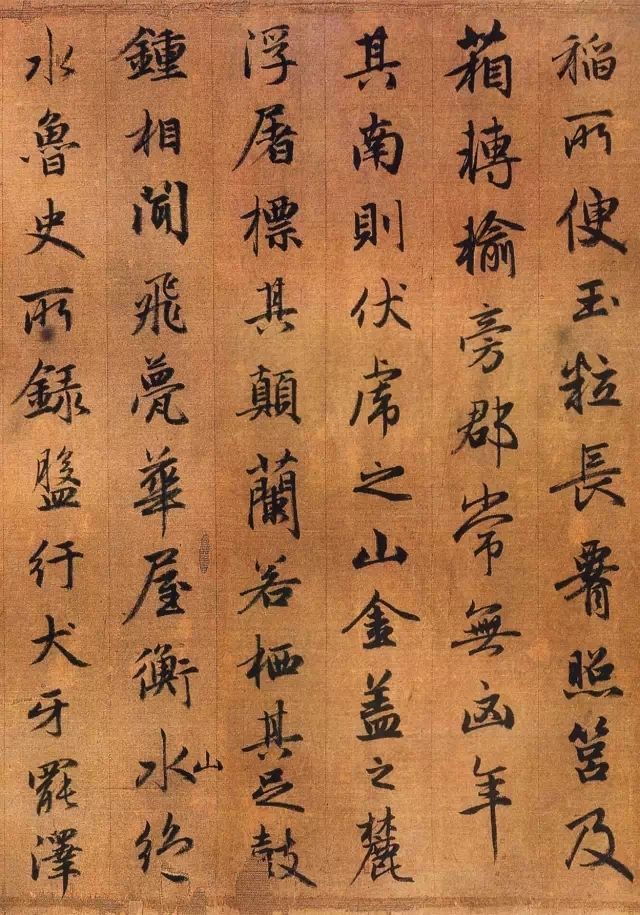 稻所便玉粒長照筥及
箱轉輸旁郡常無凶年
其南則伏虎之山金盖之麓
浮屠標其顛蘭若栖其足鼓
鍾相聞飛甍華屋衡水山絶
水魯史所録盤紆犬牙罷澤